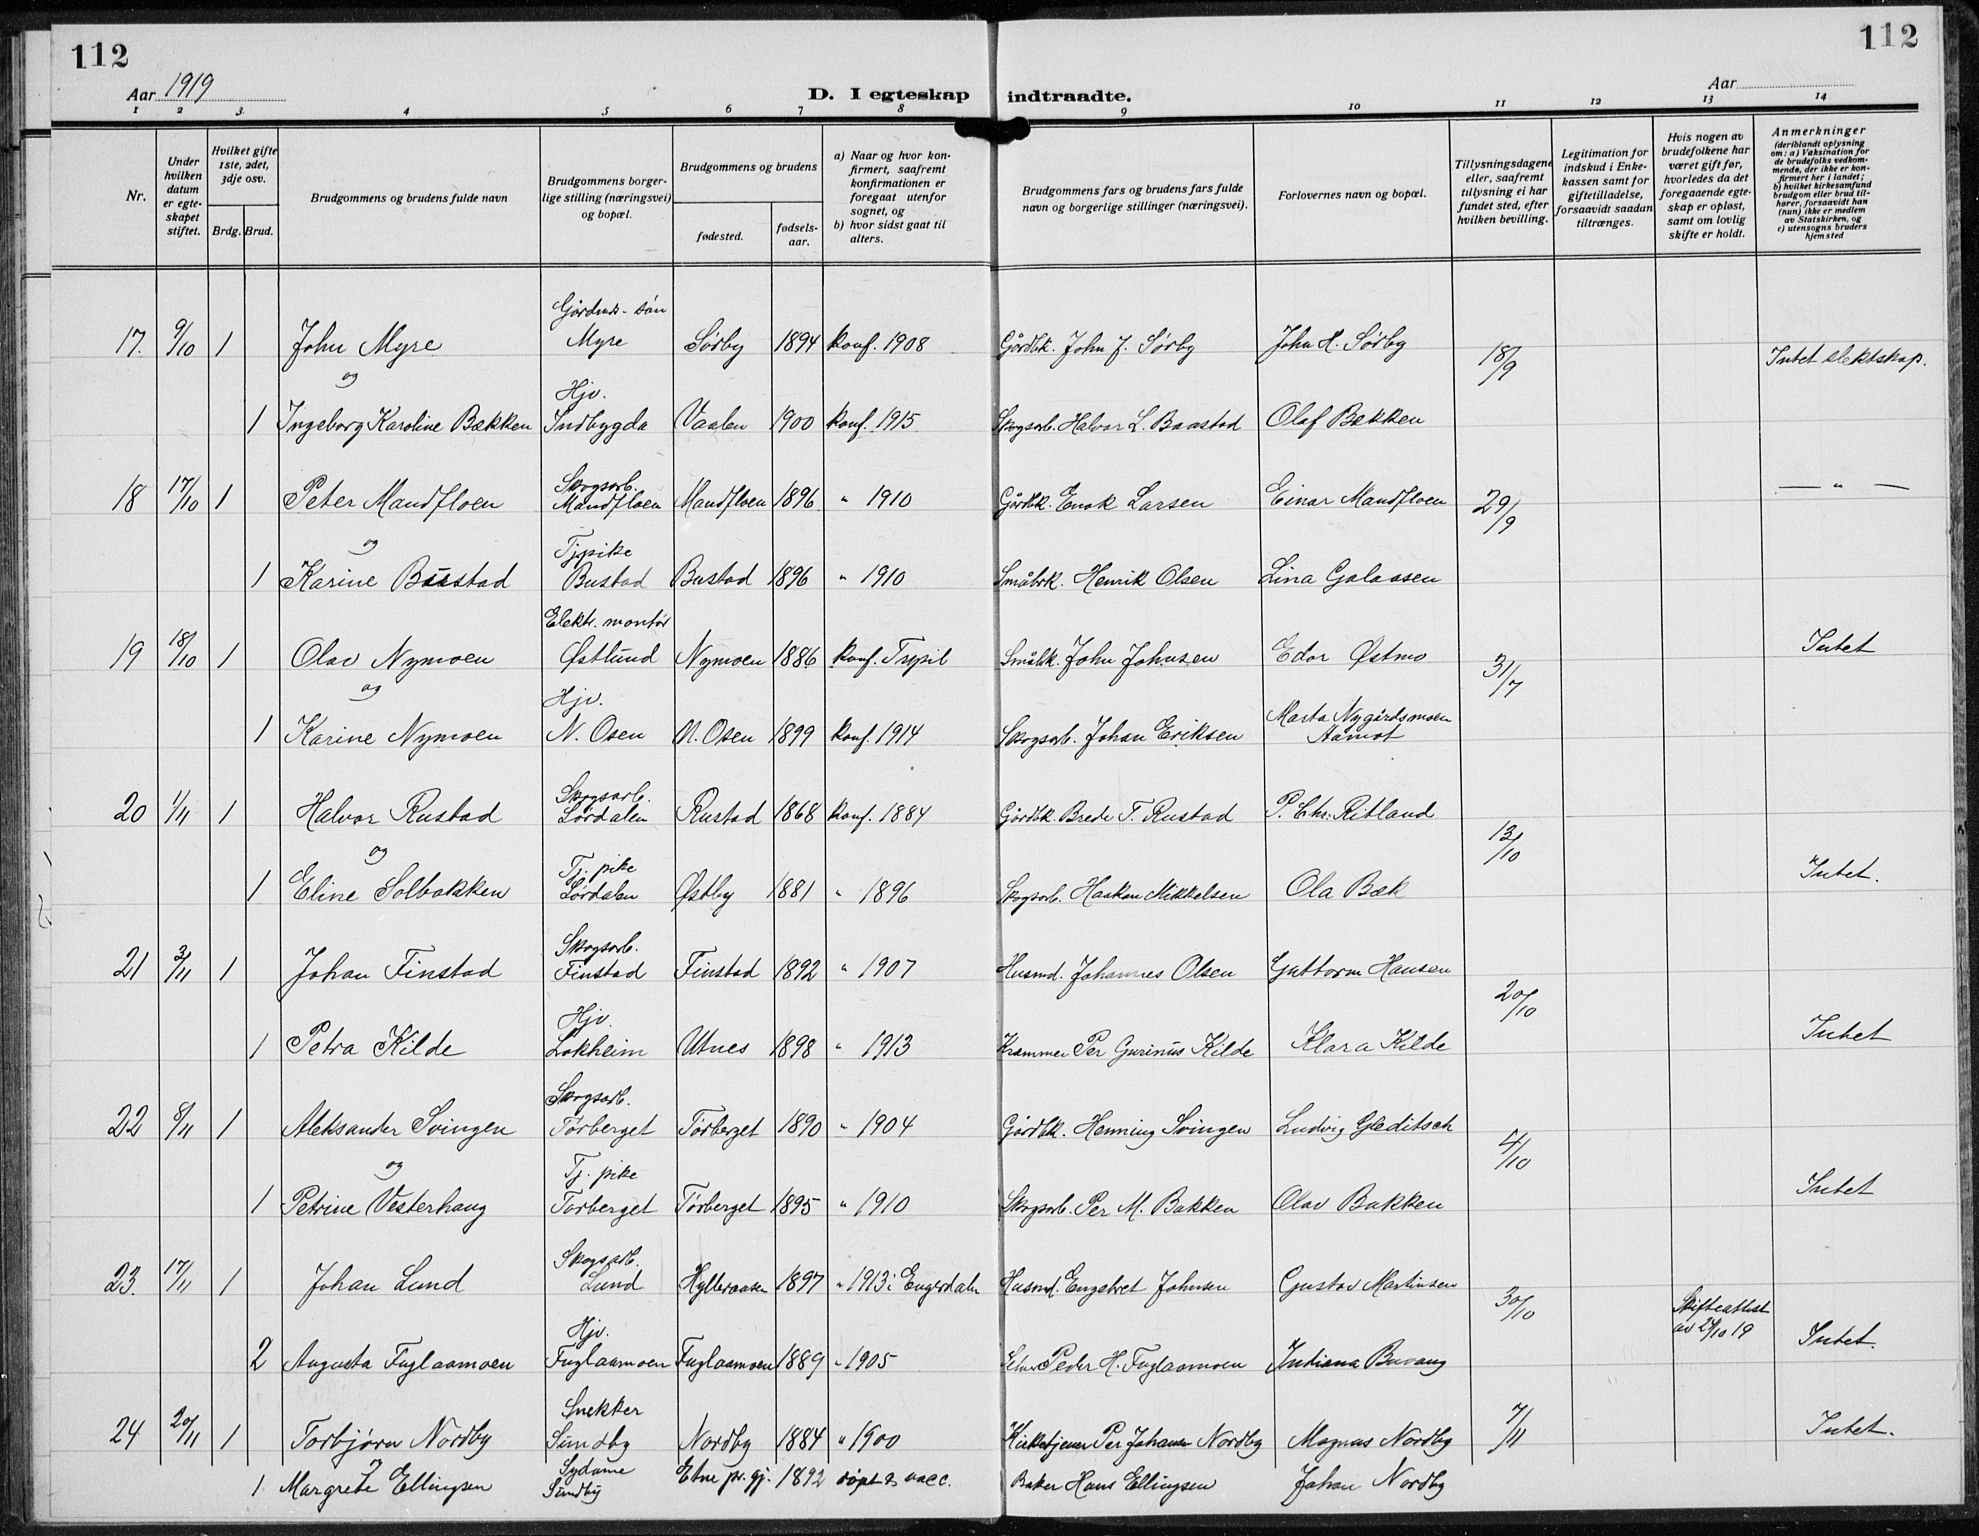 112
112
Aar 1919
D. I egteskap indtraadte.
Aar
1 2 3. 4 5 6 7 8 9 10 11 12 13 14
Nr.
Under hvilken datum er egteskapet stiftet.
Hvilket gifte 1ste, 2det, 3dje osv.
Brdg. Brud.
Brudgommens og brudens fulde navn
Brudgommens borgerlige stilling (næringsvei) og bopæl.
Brudgommens og brudens
fødested.
fødselsaar.
a) Naar og hvor konfirmert, saafremt konfirmationen er foregaat utenfor sognet, og
b) hvor sidst gaat til alters.
Brudgommens fars og brudens fars fulde navn og borgerlige stillinger (næringsvei).
Forlovernes navn og bopæl.
Tillysningsdagene eller, saafremt tillysning ei har fundet sted, efter hvilken bevilling.
Legitimation for indskud i Enkekassen samt for giftetilladelse, forsaavidt saadan tiltrænges.
Hvis nogen av brudefolkene har været gift før, hvorledes da det foregaaende egteskap er opløst, samt om lovlig skifte er holdt.
Anmerkninger (deriblandt oplysning om: a) Vaksination for de brudefolks vedkommende, der ikke er konfirmert her i landet; b) hvilket kirkesamfund brudgom eller brud tilhører, forsaavidt han (hun) ikke er medlem av Statskirken, og c) utensogns bruders hjemsted
17. 9/10 1 John Myre Gårdmds-søn Myre Sørby 1894 konf. 1908 Gårdbk. John J. Sørby John H. Sørby 18/9 Intet slektskap.
og
1 Ingeborg Karoline Bækken Hjv. Indbygda Vaalen 1900 konf. 1915 Skogsarb. Halvor L. Baastad Olaf Bækken
18 17/10 1 Peter Mandfloen Skogsarb. Mandfloen Mandfloen 1896 " 1910 Gårdbk. Enok Larsen Einar Mandfloen 29/9 — " —
og
1 Karine Bustad Tjpike Bustad Bustad 1896 " 1910 Småbrk. Henrik Olsen Lina Galaasen
19 18/10 1 Olav Nymoen Elektr. montør Østlund Nymoen 1886 konf. Trysil Småbk. John Johnsen Edor Østmo 31/7 Intet
og
1 Karine Nymoen Hjv. N. Osen N. Osen 1899 konf. 1914 Skogsarb. Johan Eriksen Marta Nygårdsmoen Aamot
20 1/11 1 Halvor Rustad Skogsarb. Sørdalen Rustad 1868 konf. 1884 Gårdbk. Brede T. Rustad P. Chr. Ritland 13/10
og
1 Eline Solbakken Tj. pike Sørdalen Østby 1881 " 1896 Skogsarb. Haakon Mikkelsen Ola Bæk Intet.
21 3/11 1 Johan Finstad Skogsarb. Finstad Finstad 1892 " 1907 Husmd. Johannes Olsen Guttorm Hansen 20/10
1 Petra Kilde Hjv. Lokheim Utnes 1898 " 1913 Kræmmer Per Gurinus Kilde Klara Kilde Intet
22 8/11 1 Aleksander Svingen Skogsarb. Tørberget Tørberget 1890 " 1904 Gårdbk. Henning Svingen Ludvig Gleditsch 4/10
og
1 Petrine Vesterhaug Tj. pike Tørberget Tørberget 1895 " 1910 Skogsarb. Per M. Bakken Olav Bakken Intet
23. 17/11 1 Johan Lund Skogsarb. Lund Hylleraasen 1897 " 1913 i Engerdalen Husmd. Engebret Johnsen Gustav Martinsen 30/10 Skifteattest av 24/10 19
2 Augusta Fuglaamoen Hjv. Fuglaamoen Fuglaamoen 1889 " 1905 Peder H. Fuglaamoen Indiana Buvang Intet.
24 20/11 1 Torbjørn Nordby Snekker Sundby Nordby 1884 " 1900 Kirketjener Per Johansen Nordby Magnus Nordby 7/11 Intet.
1 Margrete Ellingsen Sydame Sundby Etne pr. gj. 1892 døpt & vacc. Baker Hans Ellingsen Johan Nordby